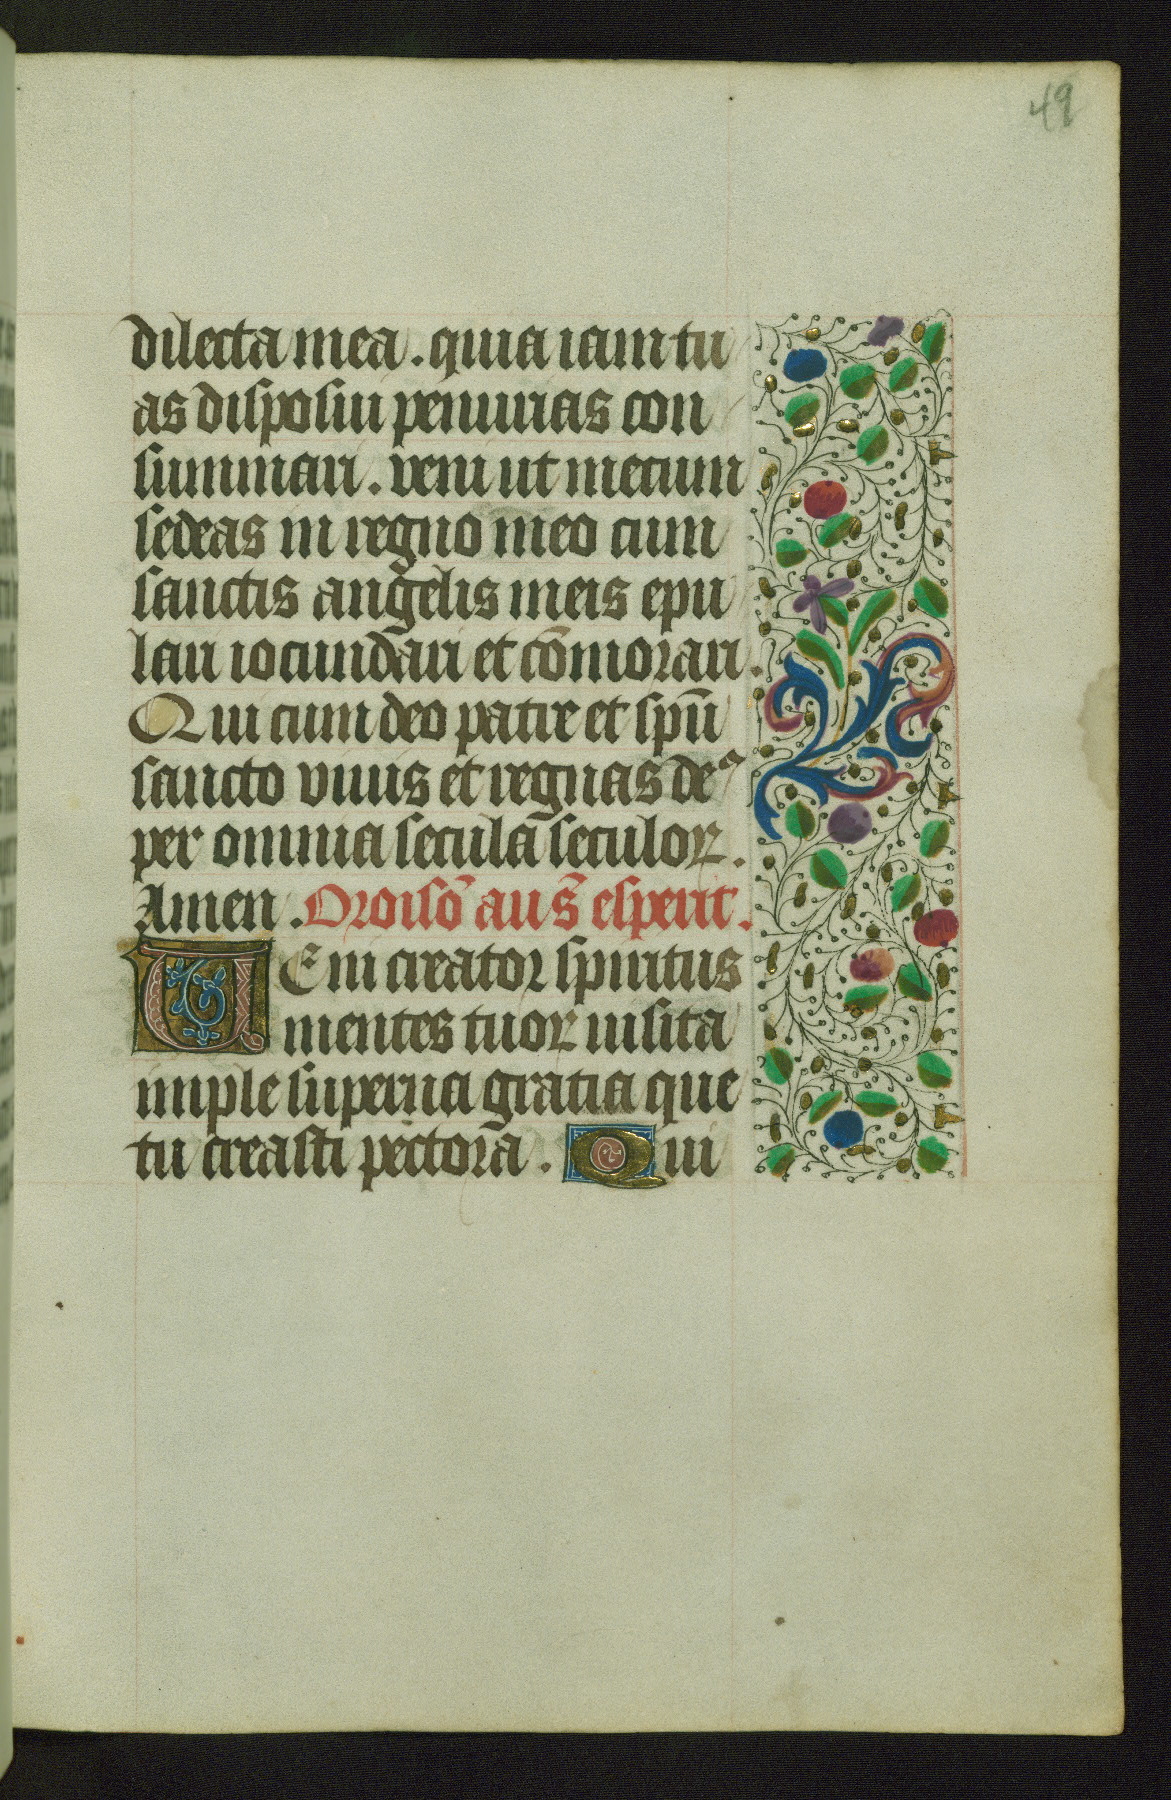 49
dilecta mea. quia iam tu
as disposui penurias con
summari. veni ut mecum
sedeas in regno meo cum
sanctis angelis meis epu
lari iocundari et cōmorari.
Qui cum deo patre et spū
sancto viuis et regnas deꝰ
per omnia secula seculoꝝ.
Amen. Oroisō au s̄ esperit.
VEni creator spiritus
mentes tuoꝝ uisita
imple superna gratia que
tu creasti pectora. Qui